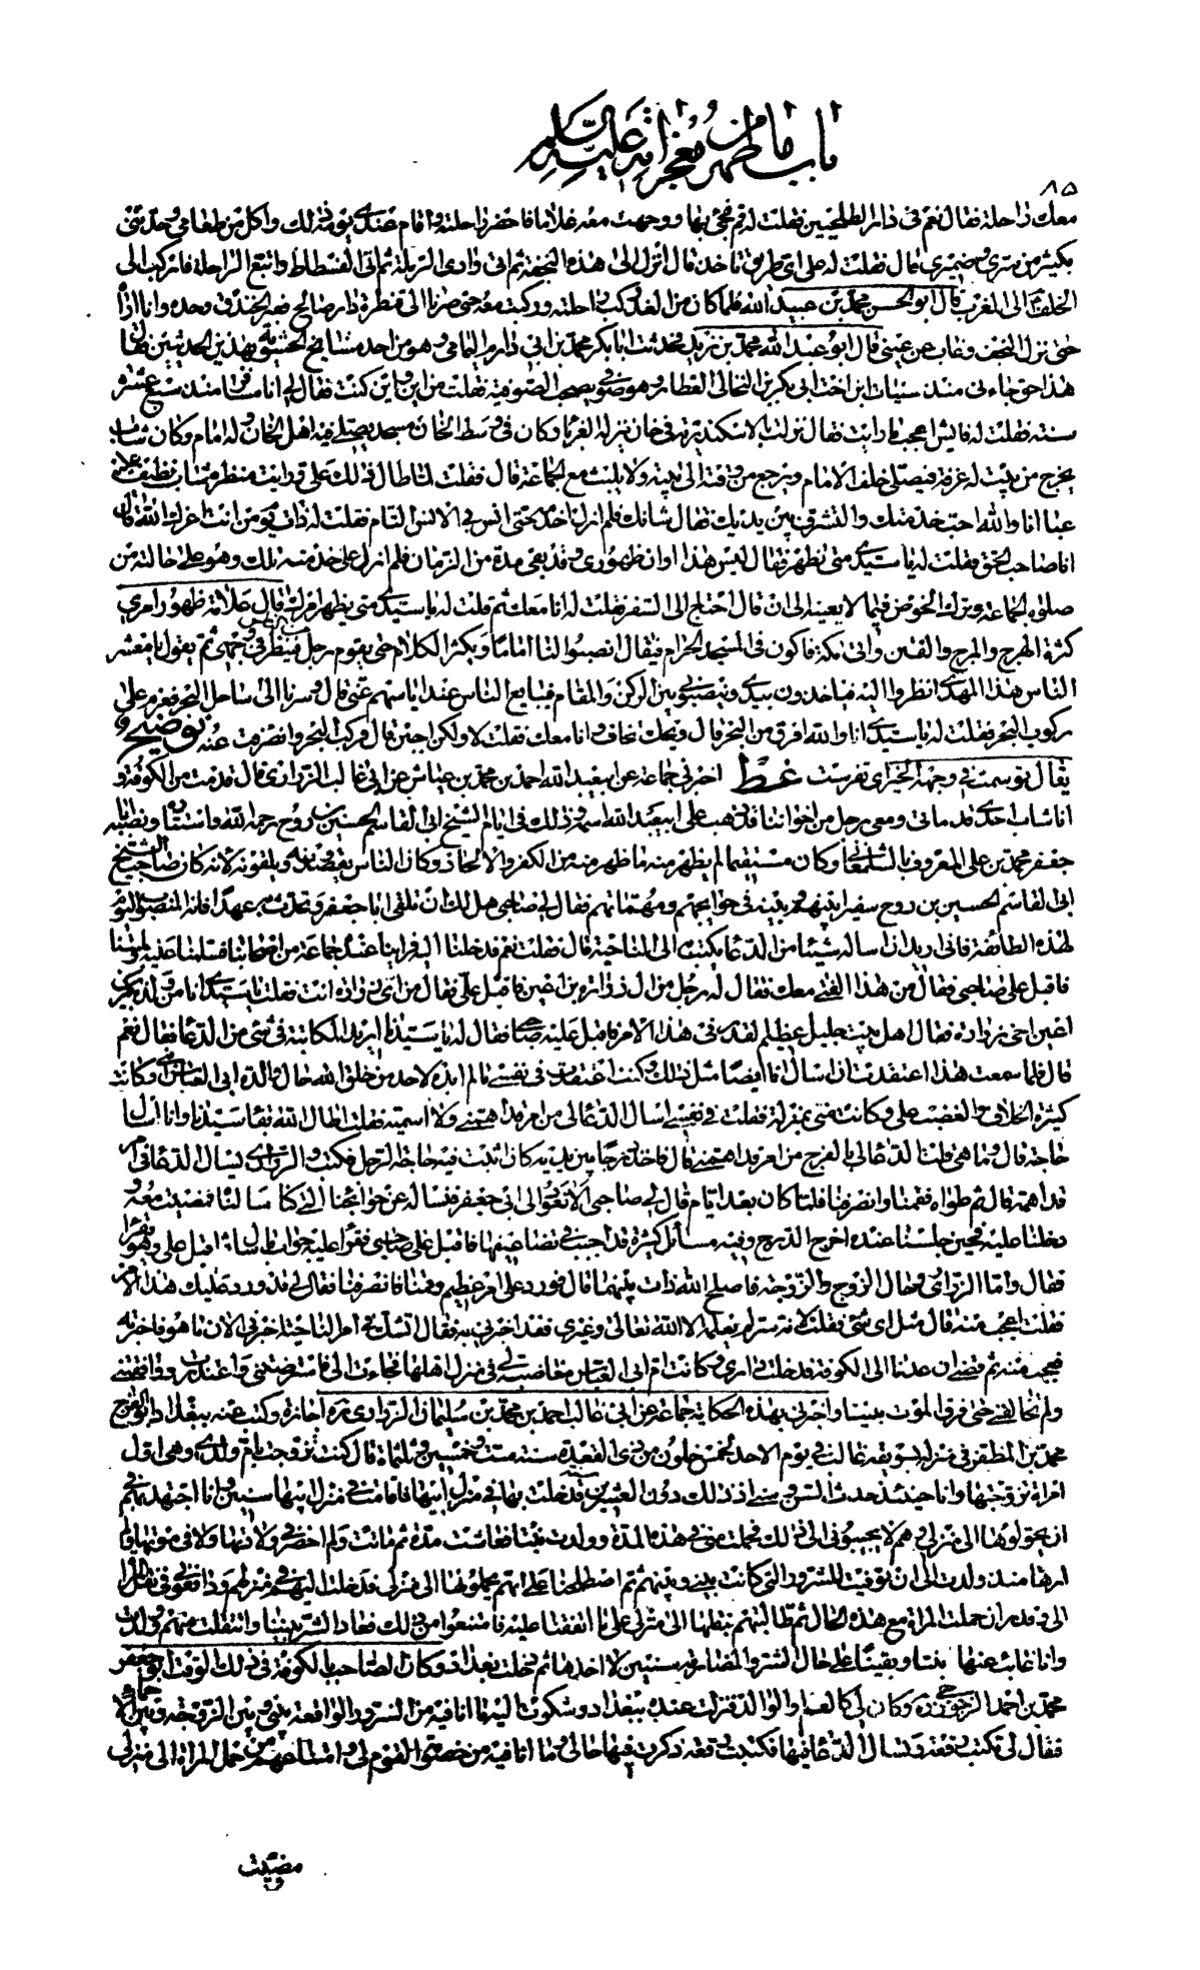 باب ما ظهر من معجزاته عليه السلم
٨٥
معك راحلة فقال نعم في دار الطلحيين فقلت له قم فجئ بها ووجهت معه غلاما فاحضر راحلته واقام عندي يومه ذلك واكل من طعامي وحدثني
بكثير من سري وضميري قال فقلت له على اي طريق تاخذ قال انزل الى هذه النجفة ثم اتى وادي الرملة ثم اتى الفسطاط واتبع الراحلة فاركب الى
الخلف الى المغرب قال ابو الحسن محمد بن عبيد الله فلما كان من الغد ركب راحلته وركبت معه حتى صرنا الى قنطرة دار صالح فعبر الخندق وحده وانا اراه
حتى نزل النجف وغاب عن عيني قال ابو عبد الله محمد بن زيد فحدثت ابا بكر محمد بن ابي دارم اليمامي وهو من احد مشايخ الحشوية بهذين الحديثين فقال
هذا حق جاءني منذ سنيات ابن اخت ابي بكر بن النخالي العطار وهو صوفي يصحب الصوفية فقلت من اين واين كنت فقال لي انا مسافر منذ سبع عشرة
سنة فقلت له فايش اعجب ما رايت فقال نزلت بالاسكندرية في خان ينزله الغرباء وكان في وسط الخان مسجد يصلي فيه اهل الخان وله امام وكان شاب
يخرج من بيت له غرفة فيصلي خلف الامام ويرجع من وقته الى بيته ولا يلبث مع الجماعة قال فقلت لما طال ذلك علي ورايت منظره شاب نظيف عليه
عبا انا والله احب خدمتك والتشرف بين يديك فقال شانك فلم ازل اخدمه حتى انس بي الانس التام فقلت له ذات يوم من انت اعزك الله قال
انا صاحب الحق فقلت له يا سيدي متى تظهر فقال ليس هذا اوان ظهوري وقد بقي مدة من الزمان فلم ازل على خدمته تلك وهو على حالته من
صلوة الجماعة وترك الخوض فيما لا يعنيه الى ان قال احتاج الى السفر فقلت له انا معك ثم قلت له يا سيدي متى يظهر امرك قال علامة ظهور امري
كثرة الهرج والمرج والفتن واتى مكة فاكون في المسجد الحرام فيقال انصبوا لنا اماما ويكثر الكلام حتى يقوم رجل من الناس فينظر في وجهي ثم يقول يا معشر
الناس هذا المهدي انظروا اليه فياخذون بيدي وينصبوني بين الركن والمقام فيبايع الناس عند اياسهم عني قال وسرنا الى ساحل البحر فعزم على
ركوب البحر فقلت له يا سيدي انا والله افرق من البحر قال ويحك تخاف وانا معك فقلت لا ولكن اجبن قال فركب البحر وانصرفت عنه توضيح
يقال توسمت في وجهه الخير اي تفرست غط اخبرني جماعة عن ابي عبد الله احمد بن محمد بن عياش عن ابي غالب الزراري قال قدمت من الكوفة و
انا شاب احدى قدماتي ومعي رجل من اخواننا قد ذهب على ابي عبد الله اسمه وذلك في ايام الشيخ ابي القاسم الحسين بن روح رحمه الله واستتاره ونصبه ابا
جعفر محمد بن علي المعروف بالشلمغاني وكان مستقيما لم يظهر منه ما ظهر منه من الكفر والالحاد وكان الناس يقصدونه ويلقونه لانه كان صاحب الشيخ
ابي القاسم الحسين بن روح سفيرا بينهم وبينه في حوايجهم ومهماتهم فقال لي صاحبي هل لك ان تلقى ابا جعفر وتحدث به عهدا فانه المنصوب اليوم
لهذه الطائفة فاني اريد ان اساله شيئا من الدعاء يكتب الى الناحية قال فقلت نعم فدخلنا اليه فراينا عنده جماعة من اصحابنا فسلمنا عليه وجلسنا
فاقبل على صاحبي فقال من هذا الفتى معك فقال له رجل من ال زرارة بن اعين فاقبل علي فقال من اي زرارة انت فقلت يا سيدي انا من ولد بكير بن
اعين اخي زرارة فقال اهل بيت جليل عظيم القدر في هذا الامر فاقبل عليه صاحبي فقال له يا سيدنا اريد المكاتبة في شئ من الدعاء فقال نعم
قال فلما سمعت هذا اعتقدت ان اسال انا ايضا مثل ذلك وكنت اعتقدت في نفسي ما لم ابده لاحد من خلق الله حال والدة ابي العباس ابني وكانت
كثيرة الخلاف والغضب علي وكانت مني بمنزلة فقلت في نفسي اسال الدعاء لي من امر قد اهمني ولا اسميه فقلت اطال الله بقاء سيدنا وانا اسال
حاجة قال وما هي قلت الدعاء لي بالفرج من امر قد اهمني قال فاخذ درجا بين يديه كان اثبت فيه حاجة الرجل فكتب والزراري يسال الدعاء في امر
قد اهمه قال ثم طواه فقمنا وانصرفنا فلما كان بعد ايام قال لي صاحبي الا نعود الى ابي جعفر فنساله عن حوايجنا التي كنا سالناه فمضيت معه و
دخلنا عليه فحين جلسنا عنده اخرج الدرج وفيه مسائل كثيرة قد اجيبت في تضاعيفها فاقبل على صاحبي فقرا عليه جواب ما سال ثم اقبل علي وهو يقرا
فقال واما الزراري وحال الزوج والزوجة فاصلح الله ذات بينهما قال فورد علي امر عظيم وقمنا فانصرفنا فقال لي قد ورد عليك هذا الامر
فقلت اعجب منه قال مثل اي شئ فقلت لانه سر لم يعلمه الا الله تعالى وغيري فقد اخبرني به فقال اتشك في امر الناحية اخبرني الان ما هو فاخبرته
فعجب منه ثم قضي ان عدنا الى الكوفة فدخلت داري وكانت ام ابي العباس مغاضبة لي في منزل اهلها فجاءت الي فاسترضتني واعتذرت ووافقتني
ولم تخالفني حتى فرق الموت بيننا واخبرني بهذه الحكاية جماعة عن ابي غالب احمد بن محمد بن سليمان الزراري ره اجازة وكتب عنه ببغداد ابو الفرج
محمد بن المظفر في منزله بسويقة غالب في يوم الاحد لخمس خلون من ذي القعدة سنة ست وخمسين وثلثمائة قال كنت تزوجت بام ولدي وهي اول
امراة تزوجتها وانا حينئذ حدث السن وسني اذ ذاك دون العشرين سنة فدخلت بها في منزل ابيها فاقامت في منزل ابيها سنين وانا اجتهد بهم في
ان يحولوها الى منزلي وهم لا يجيبوني الى ذلك فحملت مني في هذه المدة وولدت بنتا فعاشت مدة ثم ماتت ولم احضر في ولادتها ولا في موتها ولم
ارها منذ ولدت الى ان توفيت للشرور التي كانت بيني وبينهم ثم اصطلحنا على انهم يحملونها الى منزلي فدخلت اليهم في منزلهم ودافعوني في نقل المراة
الي وقدر ان حملت المراة مع هذه الحال ثم طالبتهم بنقلها الى منزلي على ما اتفقنا عليه فامتنعوا من ذلك فعاد الشر بيننا وانتقلت عنهم وولدت
وانا غائب عنها بنتا وبقينا على حال الشر والمضارمة سنين لا اخذها ثم دخلت بغداد وكان الصاحب بالكوفة في ذلك الوقت ابو جعفر
محمد بن احمد الزجوزجي ره وكان لي كالعم او الوالد فنزلت عنده ببغداد وشكوت اليه ما انا فيه من الشرور الواقعة بيني وبين الزوجة وبين الاحماء
فقال لي تكتب رقعة وتسال الدعاء فيها فكتبت رقعة ذكرت فيها حالي وما انا فيه من خصومة القوم لي وامتناعهم من حمل المراة الى منزلي
ومضيت